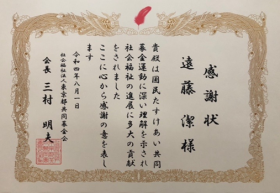 感謝状
遠藤 潔 様
貴殿は国民たすけあい共同
募金運動に深い理解を示され
社会福祉の進展に多大の貢献
をされました
ここに心から感謝の意を表し
ます
令和四年八月一日
社会福祉法人東京都共同募金会
会長 三村 明夫